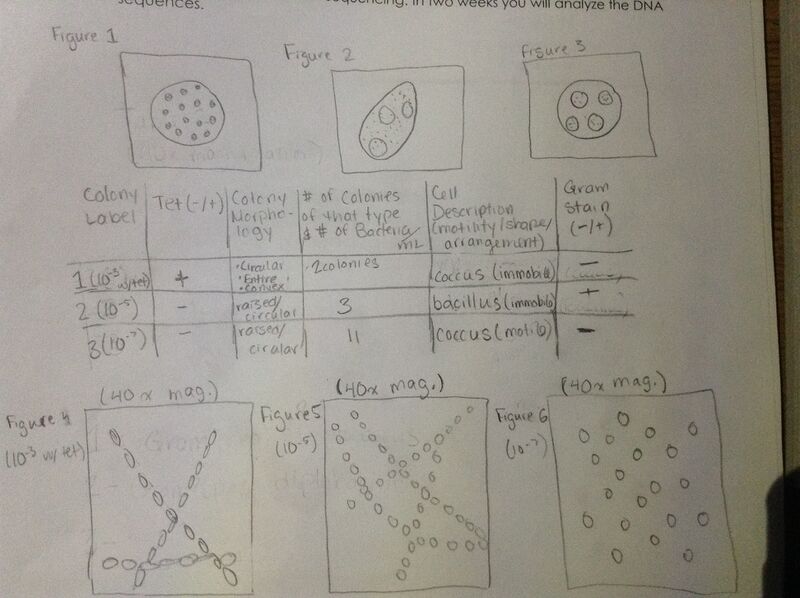 sequences.
sequencing. In two weeks you will analyze the DNA
Figure 1
Figure 2
Figure 3
Colony Label
Tet (-/+)
Colony Morpho-logy
# of Colonies of that type & # of Bacteria/mL
Cell Description (motility/shape/arrangement)
Gram Stain (-/+)
1 (10⁻³ w/tet)
+
·Circular
·Entire
·convex
·2colonies
coccus (immobile)
-
2 (10⁻⁵)
-
raised/circular
3
bacillus (immobile)
+
3 (10⁻⁷)
-
raised/circular
11
coccus (motile)
-
(40x mag.)
(40x mag.)
(40x mag.)
Figure 4
(10⁻³ w/tet)
Figure 5
(10⁻⁵)
Figure 6
(10⁻⁷)